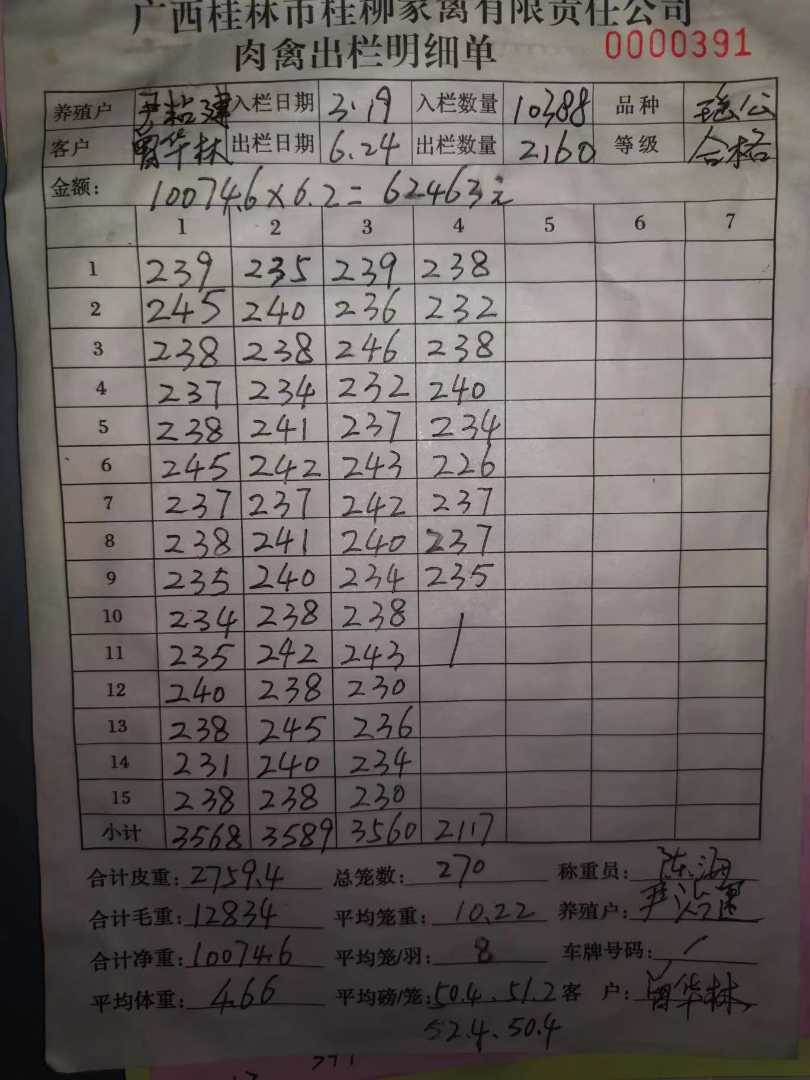 广西桂林市桂柳家禽有限责任公司
肉禽出栏明细单 0000391
养殖户 入栏日期 3.19 入栏数量 10388 品种
客户 曾华林 出栏日期 6.24 出栏数量 2160 等级 合格
金额: 10074.6×6.2=62463元
1 2 3 4 5 6 7
1 239 235 239 238
2 245 240 236 232
3 238 238 246 238
4 237 234 232 240
5 238 241 237 234
6 245 242 243 226
7 237 237 242 237
8 238 241 240 237
9 235 240 234 235
10 234 238 238
11 235 242 243
12 240 238 230
13 238 245 236
14 231 240 234
15 238 238 230
小计 3568 3589 3560 2117
合计皮重: 2759.4 总笼数: 270 称重员:
合计毛重: 12834 平均笼重: 10.22 养殖户:
合计净重: 10074.6 平均笼/羽: 8 车牌号码: /
平均体重: 4.66 平均磅/笼: 50.4、51.2 客 户: 曾华林
52.4、50.4